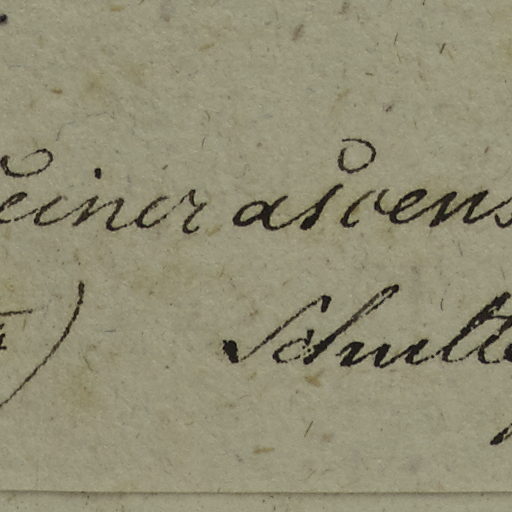 cinerascens
) Schult